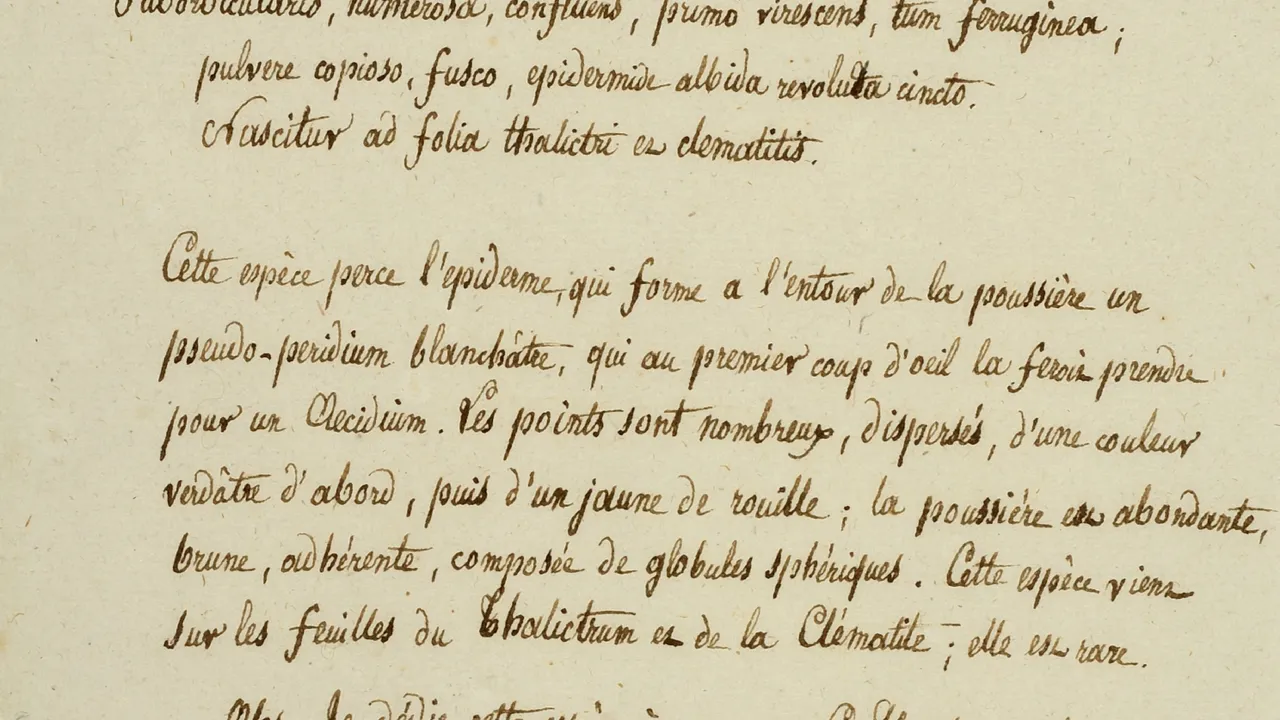 Suborbicularis, numerosa, confluens, primo virescens, tum ferruginea;
pulvere copioso, fusco, epidermide albida revoluta cincto.
Nascitur ad folia thalictri et clematitis.
Cette espèce perce l'epiderme, qui forme a l'entour de la poussière un
pseudo-peridium blanchâtre, qui au premier coup d'oeil la feroit prendre
pour un Aecidium. Les points sont nombreux, dispersés, d'une couleur
verdâtre d'abord, puis d'un jaune de rouille; la poussiére est abondante,
brune, adhérente, composée de globules sphériques. Cette espèce vient
sur les feuilles du Thalictrum et de la Clématite; elle est rare.